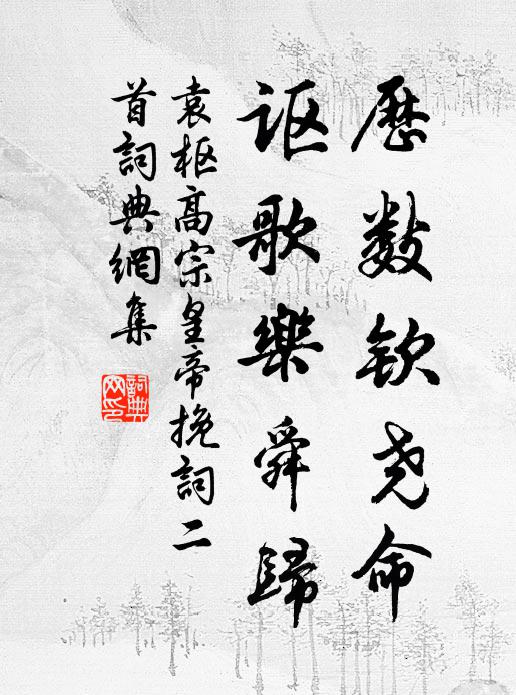 歷數欽尧命
讴歌樂舜歸
袁枢高宗皇帝挽詞二
首詞典網集
詞典
网印